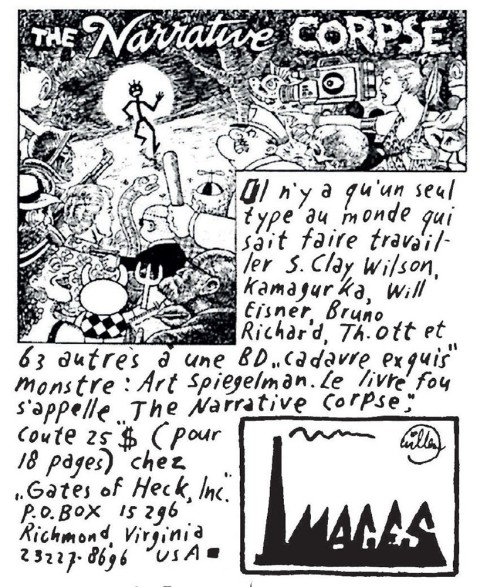 THE Narrative CORPSE
Il n'y a qu'un seul
type au monde qui
sait faire travail-
ler S. Clay Wilson,
Kamagurka, Will
Eisner, Bruno
Richard, Th. Ott et
63 autres à une BD „cadavre exquis"
monstre : Art Spiegelman. Le livre fou
s'appelle „The Narrative Corpse",
coute 25 $ (pour
18 pages) chez
„Gates of Heck, Inc."
P.O. BOX 15296
Richmond, Virginia
23227-8696 USA
Willem
IMAGES